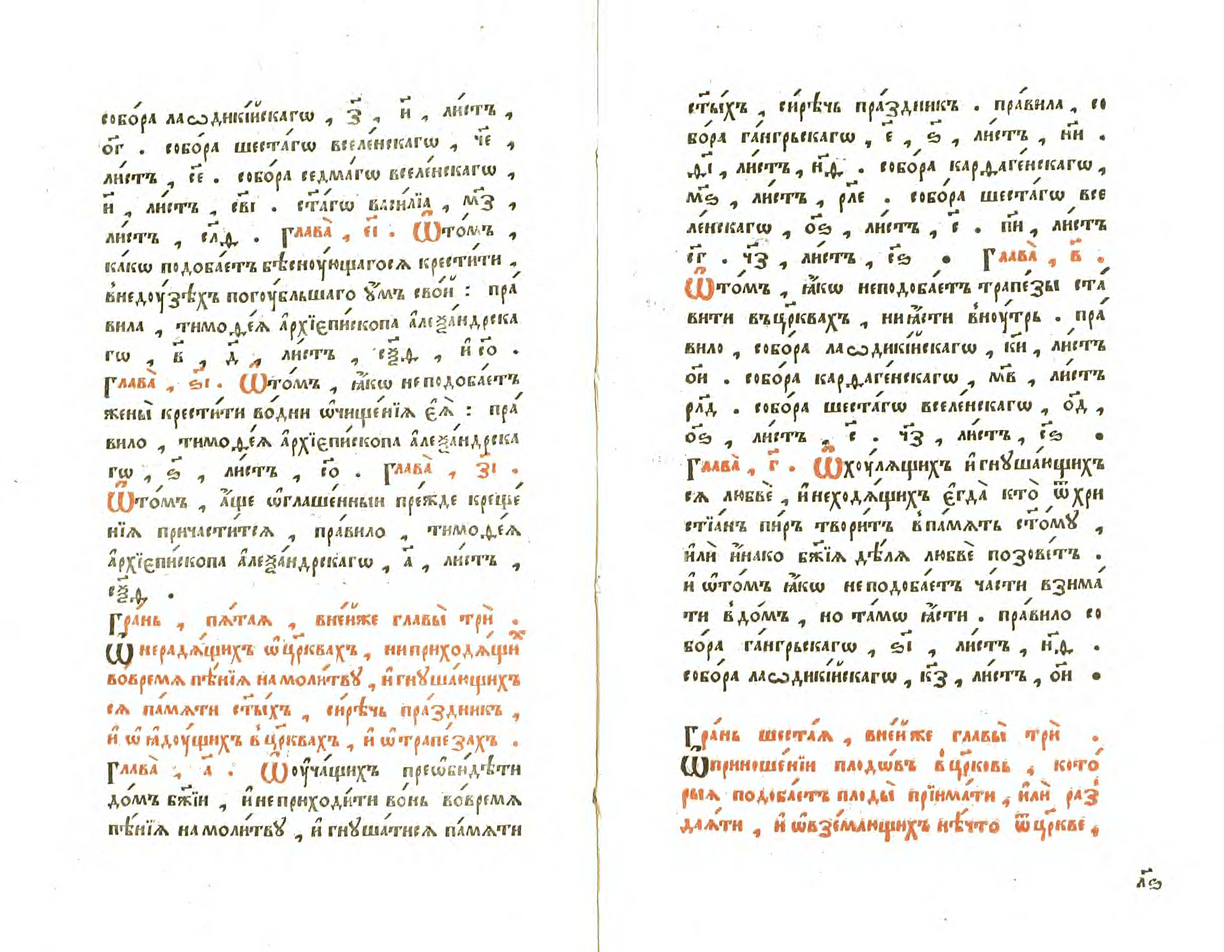 собо́ра лаѡдикі́йскагѡ , з҃ , и҃ , ли́стъ ,
о҃г . собо́ра шеста́гѡ вселе́нскагѡ , ч҃е ,
ли́стъ , с҃е . собо́ра седма́гѡ вселе́нскагѡ ,
и҃ , ли́стъ , с҃ві . ст҃а́гѡ васи́лїа , м҃з ,
ли́стъ , с҃лѳ . Глава̀ , е҃і . Ѿто́мъ ,
ка́кѡ подоба́етъ бѣсноу́ющагося крести́ти ,
внедоу́зѣхъ погоу́бльшаго ᲂу҆́мъ сво́й : пра́
вила , тимоѳе́я а҆рхїепи́скопа а҆леѯа́ндрска
гѡ , в҃ , д҃ , ли́стъ , с҃ѯѳ , и҆ с҃о .
Глава̀ , ѕ҃і . Ѿто́мъ , ꙗ҆́кѡ неподоба́етъ
жены̀ крести́ти во́дни ѡ҆чище́нїя є҆ѧ̀ : пра́
вило , тимоѳе́я а҆рхїепи́скопа а҆леѯа́ндрска
гѡ , ѕ҃ , ли́стъ , с҃о . Глава̀ , з҃і .
Ѿто́мъ , а҆́ще ѡ҆глаше́нныи пре́жде креще́
нїя причасти́тся , пра́вило , тимоѳе́я
а҆рхїепи́скопа а҆леѯа́ндрскагѡ , а҃ , ли́стъ ,
с҃ѯѳ .
Гра́нь , пя́тая , вне́йже главы̀ трѝ .
Ѡ҆ нерадя́щихъ ѡ҆ цр҃квахъ , ниприходя́щиⷯ
во́время пѣ́нїя намоли́твꙋ , и҆ гнꙋша́ющихъ
ся па́мяти ст҃ы́хъ , си́рѣчь пра́здникъ ,
и҆ ѡ҆ ꙗ҆доу́щихъ в цр҃квахъ , и҆ ѡ҆ трапе́захъ .
Глава̀ , а҃ . Ѡ҆оуча́щихъ преѡби́дѣти
до́мъ бж҃їи , и҆ неприходи́ти во́нь во́время
пѣ́нїя намоли́твꙋ , и҆ гнꙋша́тися па́мяти
ст҃ы́хъ , си́рѣчь пра́здникъ . пра́вила , со
бо́ра га́нгрьскагѡ , е҃ , ѕ҃ , ли́стъ , н҃и .
д҃і , ли́стъ , н҃ѳ . собо́ра карѳаге́нскагѡ ,
м҃ѕ , ли́стъ , р҃ле . собо́ра шеста́гѡ все
ле́нскагѡ , о҃ѕ , ли́стъ , с҃ . п҃и , ли́стъ
с҃г . ч҃з , ли́стъ , с҃ѕ . Глава̀ , в҃ .
Ѿто́мъ , ꙗ҆́кѡ неподоба́етъ трапе́зы ста́
вити въцр҃квахъ , ниꙗ҆́сти в҆ноу́трь . пра́
вило , собо́ра лаѡдикі́йскагѡ , к҃и , ли́стъ
о҃и . собо́ра карѳаге́нскагѡ , м҃в , ли́стъ
р҃лд . собо́ра шеста́гѡ вселе́нскагѡ , о҃д ,
о҃ѕ , ли́стъ , с҃ . ч҃з , ли́стъ , с҃ѕ .
Глава̀ , г҃ . Ѡ҆ хоуля́щихъ и҆ гнꙋша́ющихъ
ся любвѐ , и҆ неходя́щихъ є҆гда̀ кто̀ ѿ хри
стїа́нъ пи́ръ твори́тъ впа́мять ст҃о́мꙋ ,
и҆лѝ и҆́нако бж҃їя дѣ́ля любвѐ позове́тъ .
и҆ ѡ҆то́мъ ꙗ҆́кѡ неподоба́етъ ча́сти взима́
ти вдо́мъ , но та́мѡ ꙗ҆́сти . пра́вило со
бо́ра га́нгрьскагѡ , ѕ҃і , ли́стъ , н҃ѳ .
собо́ра лаѡдикі́йскагѡ , к҃з , ли́стъ , о҃и .
Гра́нь шеста́я , вне́йже главы̀ трѝ .
Ѡ҆ приноше́нїи плодѡ́въ в цр҃ковь , кото́
рыя подоба́етъ плоды̀ прїима́ти , и҆лѝ раз̾
дая́ти , и҆ ѡ҆ взе́млющихъ нѣ́что ѿ цр҃кве ,
л҃ѕ